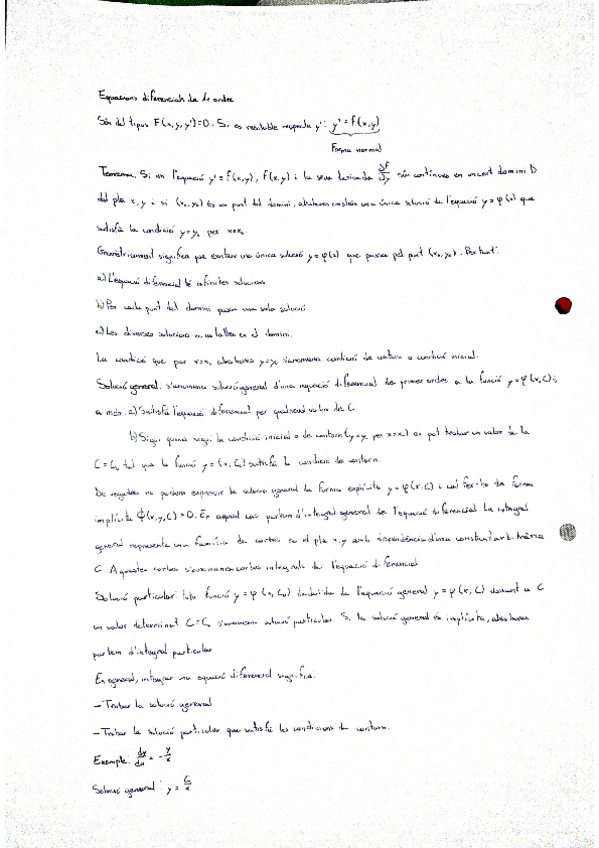 Equacions diferencials de 1r ordre
Són del tipus F(x,y,y')=0. Si es resoluble respecte y': y'=f(x,y)
Forma normal
Teorema. Si en l'equació y'=f(x,y), f(x,y) i la seva derivada ∂f/∂y són contínues en un cert domini D
del pla x,y i si (x₀,y₀) és un punt del domini, aleshores existeix una única solució de l'equació y=φ(x) que
satisfà la condició y=y₀ per x=x₀.
Geomètricament significa que existeix una única solució y=φ(x) que passa pel punt (x₀,y₀). Per tant:
a) L'equació diferencial té infinites solucions
b) Per cada punt del domini passa una sola solució.
c) Les diverses solucions no es tallen en el domini.
La condició que per x=x₀ aleshores y=y₀ s'anomena condició de contorn o condició inicial.
Solució general: s'anomena solució general d'una equació diferencial de primer ordre a la funció y=φ(x,C);
a més: a) Satisfà l'equació diferencial per qualsevol valor de C
b) Sigui quina sigui la condició inicial o de contorn (y=y₀ per x=x₀) es pot trobar un valor de la
C=C₀ tal que la funció y=(x,C₀) satisfà la condició de contorn.
De vegades no podem expressar la solució general la forma explícita y=φ(x,C) i cal fer-ho de forma
implícita Φ(x,y,C)=0. En aquest cas parlem d'integral general de l'equació diferencial. La integral
general representa una família de corbes en el pla x,y amb dependència d'una constant arbitrària
C. Aquestes corbes s'anomenen corbes integrals de l'equació diferencial
Solució particular: tota funció y=φ(x,C₀) deduïda de l'equació general y=φ(x,C) donant a C
un valor determinat C=C₀ s'anomena solució particular. Si la solució general és implícita, aleshores
parlem d'integral particular
En general, integrar una equació diferencial significa:
– Trobar la solució general
– Trobar la solució particular que satisfà les condicions de contorn.
Exemple: dy/dx = -y/x
Solució general: y = C/x